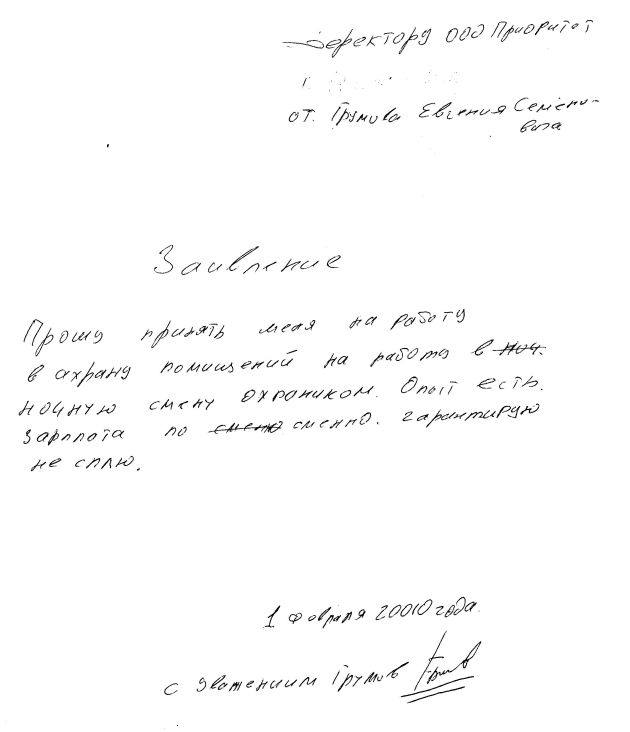 Деректору ООО Приоритет
от. Грумова Евгения Семёно-
вича
Заивление
Прошу принять меня на работу
в ахрану помищений на работу в ноч.
ночную смену охраником. Опыт есть.
Зарплота по смено сменно. гарантирую
не сплю.
1 Февраля 20010 года.
с уваженииим Грумов